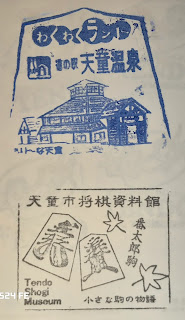 わくわくランド
道の駅 天童温泉
天童市将棋資料館
番太郎駒
Tendo
Shogi
Museum
小さな駒の物語
S24 FE